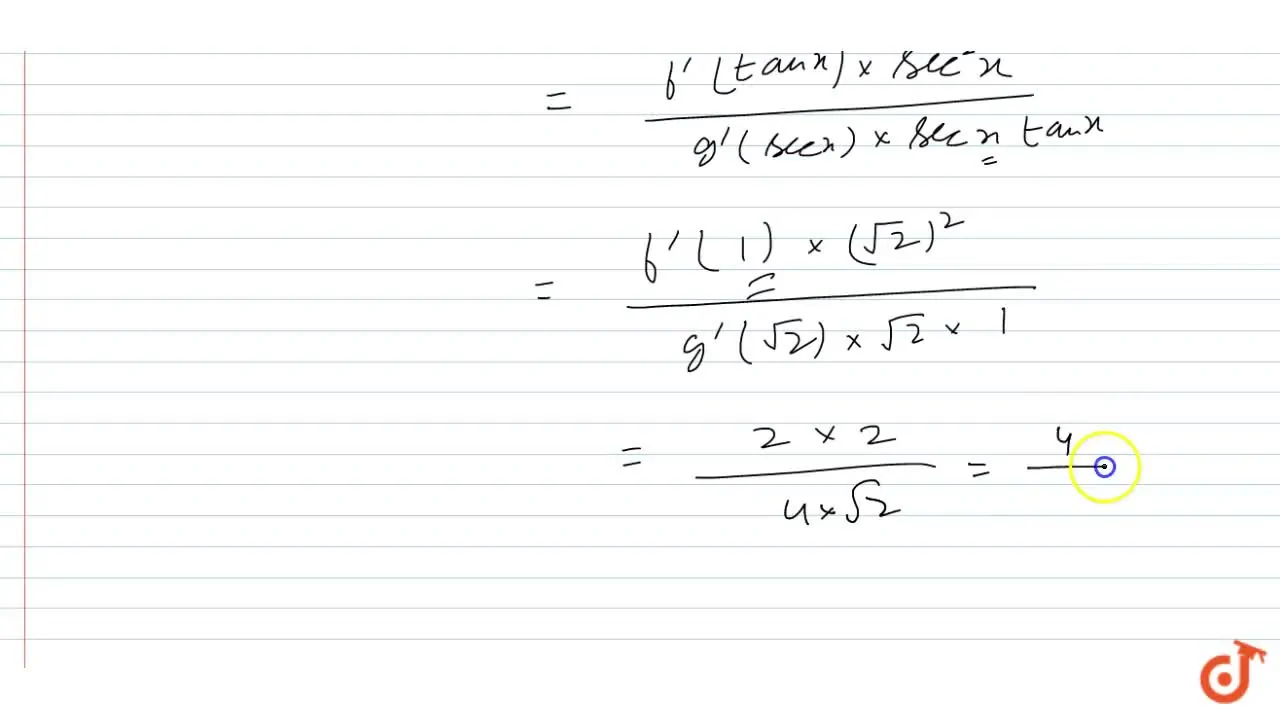 = f'(tanx) × sec²x / g'(secx) × secx tanx
= f'(1) × (√2)² / g'(√2) × √2 × 1
= 2 × 2 / 4×√2 = 4 /